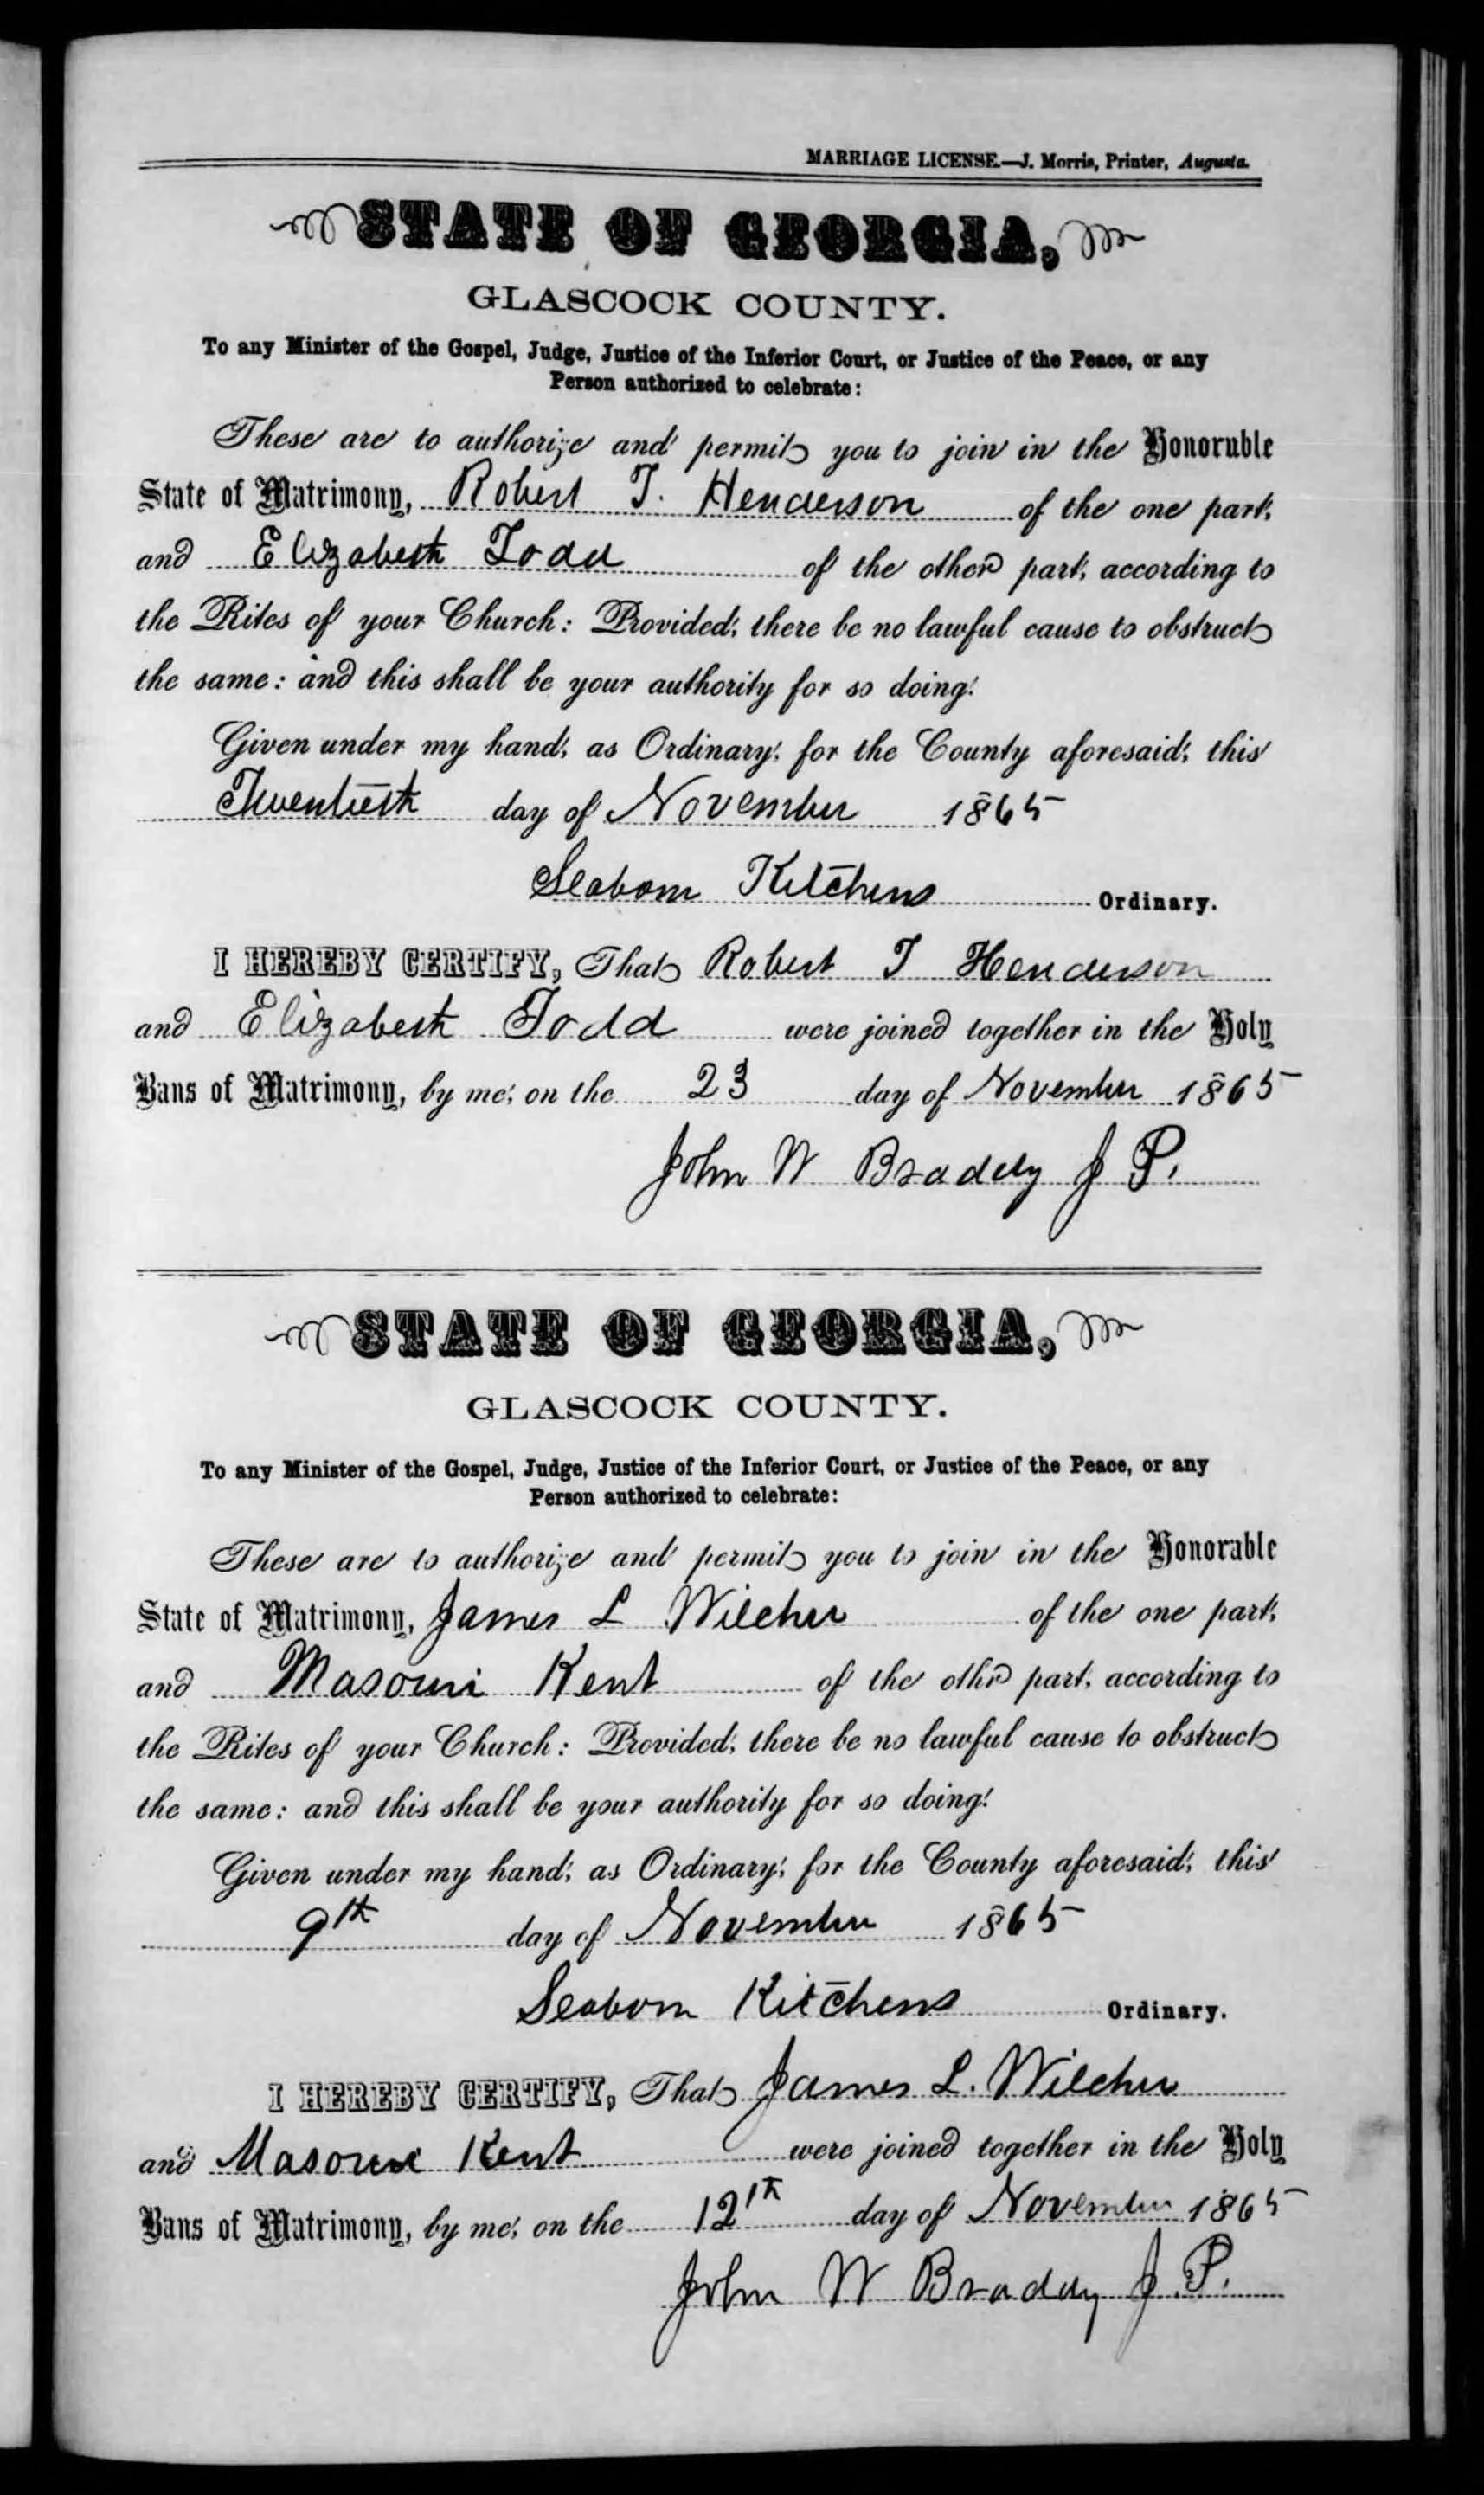 MARRIAGE LICENSE.—J. Morris, Printer, Augusta.
STATE OF GEORGIA,
GLASCOCK COUNTY.
To any Minister of the Gospel, Judge, Justice of the Inferior Court, or Justice of the Peace, or any
Person authorized to celebrate:
These are to authorize and permit you to join in the Honoruble
State of Matrimony, Robert T. Henderson of the one part,
and Elizabeth Todd of the other part, according to
the Rites of your Church: Provided, there be no lawful cause to obstruct
the same: and this shall be your authority for so doing.
Given under my hand, as Ordinary, for the County aforesaid, this
Twentieth day of November 1865
Seaborn Kitchens Ordinary.
I HEREBY CERTIFY, That Robert T Henderson
and Elizabeth Todd were joined together in the Holy
Bans of Matrimony, by me, on the 23 day of November 1865
John W Braddy J P.
STATE OF GEORGIA,
GLASCOCK COUNTY.
To any Minister of the Gospel, Judge, Justice of the Inferior Court, or Justice of the Peace, or any
Person authorized to celebrate:
These are to authorize and permit you to join in the Honorable
State of Matrimony, James L Wilcher of the one part,
and Masouri Kent of the other part, according to
the Rites of your Church: Provided, there be no lawful cause to obstruct
the same: and this shall be your authority for so doing.
Given under my hand, as Ordinary, for the County aforesaid, this
9th day of November 1865
Seaborn Kitchens Ordinary.
I HEREBY CERTIFY, That James L. Wilcher
and Masouri Kent were joined together in the Holy
Bans of Matrimony, by me, on the 12th day of November 1865
John W Braddy J.P.